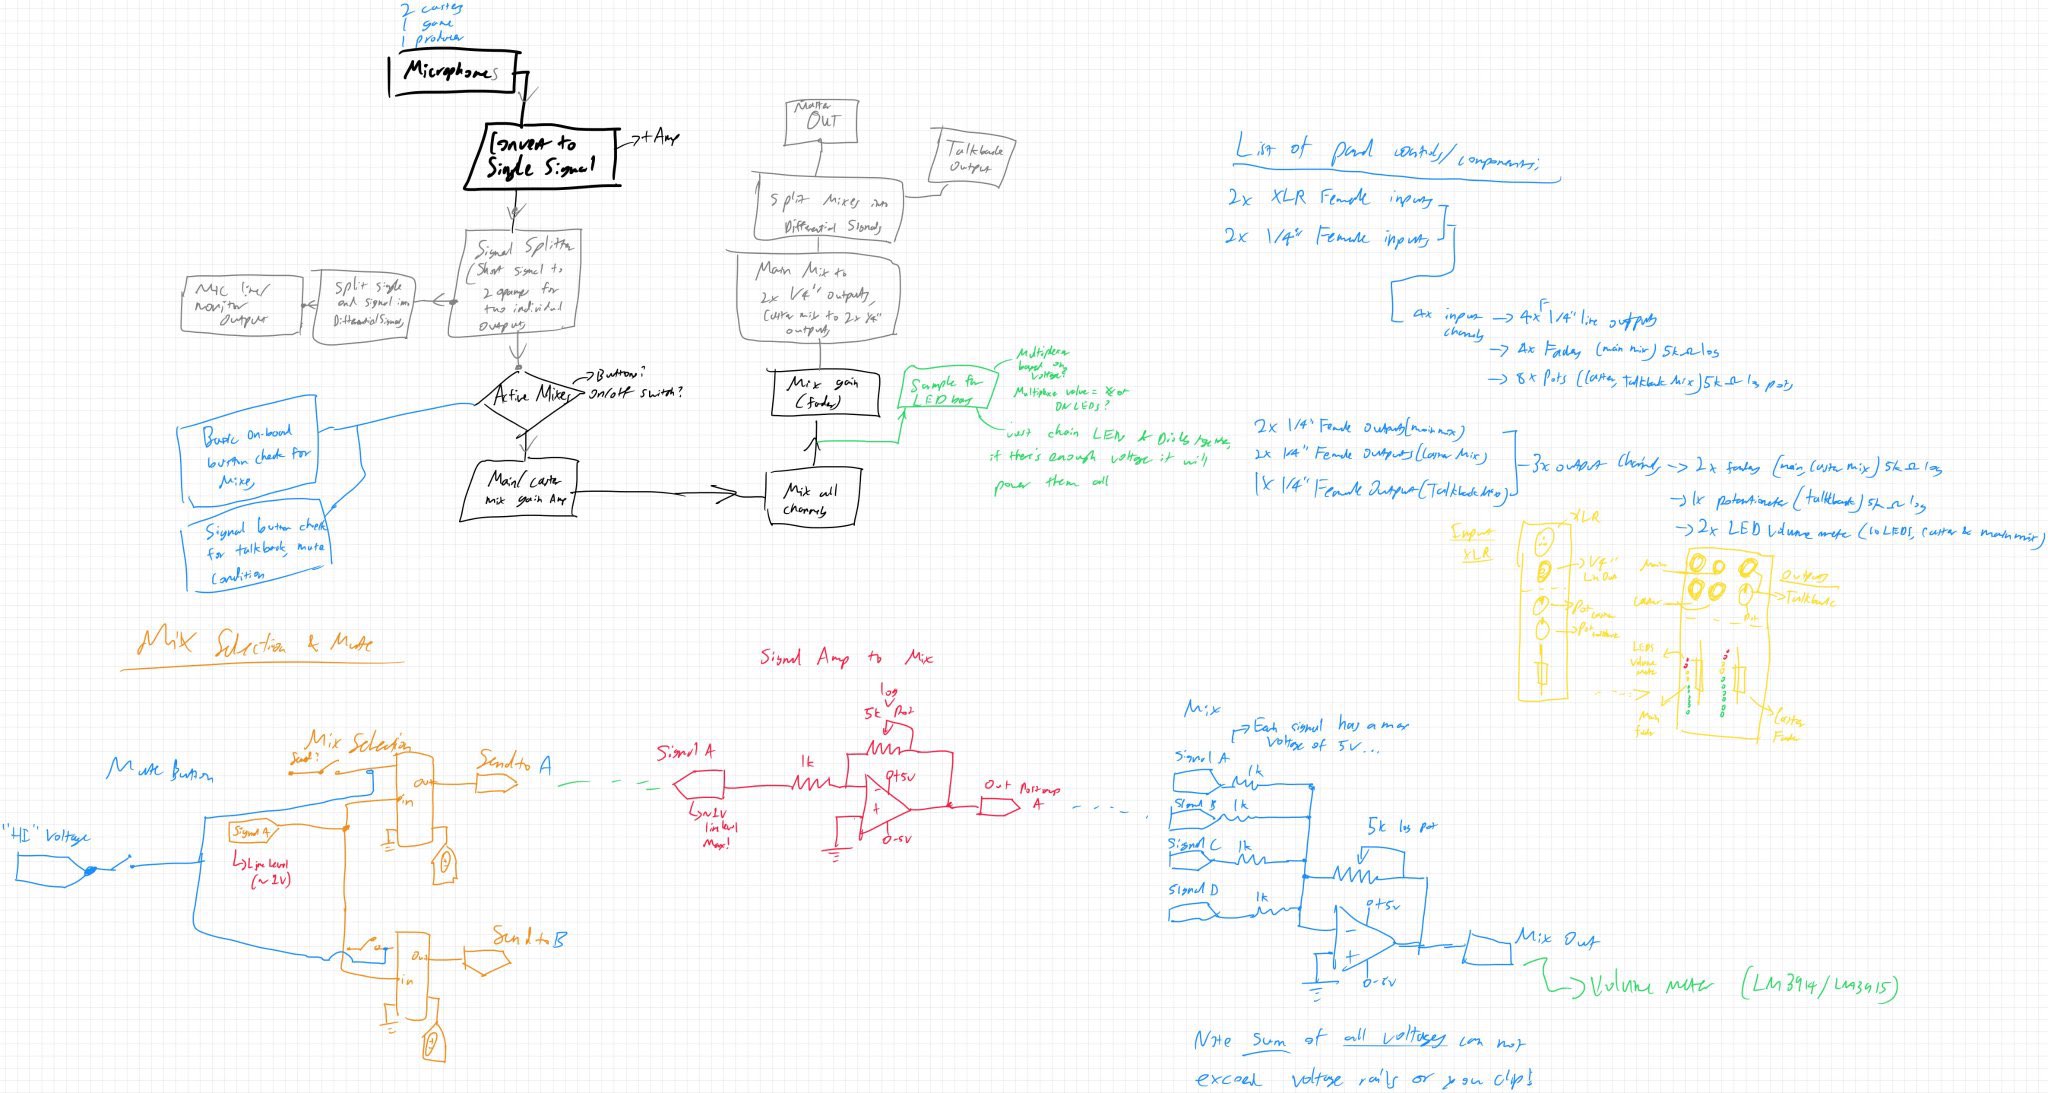 2 casters
1 game
1 producer
Microphones
Convert to
Single Signal
→ + Amp
Signal Splitter
(Short signal to
2 opamps for
two individual
outputs
Split single
end signal into
Differential Signals
Mic line/
monitor
output
Active Mixes
→ Button?
on/off switch?
Basic on-board
button check for
Mixes
Signal button check
for talkback, mute
condition
Main/caster
mix gain Amp
Mix all
channels
Mix gain
(fader)
Sample for
LED bar
Multiplexer
based on
voltage?
Multiplexer value = # of
ON LEDs?
chain LEDs & Diodes together,
if there's enough voltage it will
power them all
Main Mix to
2x 1/4" outputs,
Caster mix to 2x 1/4"
outputs
Split Mixes into
Differential Signals
Master
OUT
Talkback
Output
List of panel controls/components:
2x XLR Female inputs
2x 1/4" Female inputs
4x input
channels
→ 4x F 1/4" line outputs
→ 4x Fader (main mix) 5kΩ log
→ 8x Pots (caster, talkback Mix) 5kΩ log pots
2x 1/4" Female Outputs (main mix)
2x 1/4" Female Outputs (Caster Mix)
1x 1/4" Female Output (Talkback Mix)
3x output channels → 2x faders (main, caster mix) 5kΩ log
→ 1x potentiometer (talkback) 5kΩ log
→ 2x LED Volume meter (10 LEDs, caster & main mix)
Input
XLR
XLR
→ 1/4"
Line Out
→ Pot caster
→ Pot
Main
Caster
Outputs
Talkback
Pot
LEDs
Volume
meter
Main
fader
Caster
Fader
Mix Selection & Mute
Mute Button
"HI" Voltage
Mix Selection
Send?
Signal A
↳ Line Level
(~1V)
Out
in
Send to A
Out
in
Send to B
Signal Amp to Mix
log
5k Pot
Signal A
↳ ~1V
line level
Max!
1k
+5v
0-5v
Out Postamp
A
Mix
→ Each signal has a max
Voltage of 5V...
Signal A
1k
Signal B
1k
Signal C
1k
Signal D
1k
5k log pot
+5v
0-5v
Mix Out
→ Volume meter (LM3914/LM3915)
Note Sum of all voltages can not
exceed voltage rails or you clip!